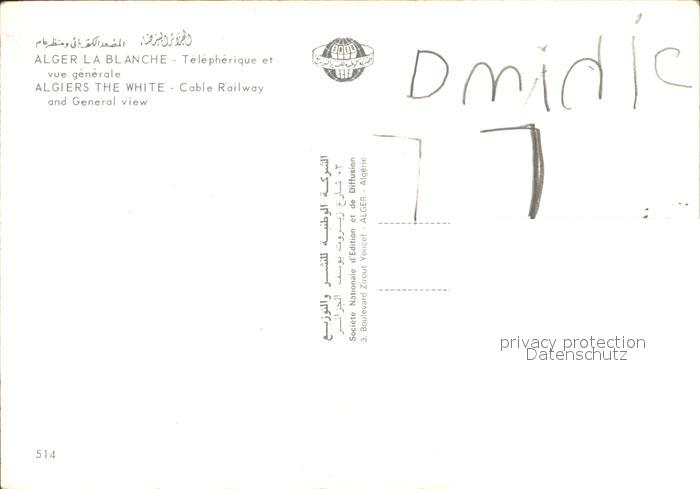 الجزائر البيضاء المصعد الكهربائي ومنظر عام
ALGER LA BLANCHE - Téléphérique et
vue générale
ALGIERS THE WHITE - Cable Railway
and General view
SNED
Dmidic
77
الشركة الوطنية للنشر والتوزيع
٠٣ شارع زيروت يوسف الجزائر
Société Nationale d'Edition et de Diffusion
3, Boulevard Zirout Youcef - ALGER - Algérie
privacy protection
Datenschutz
514